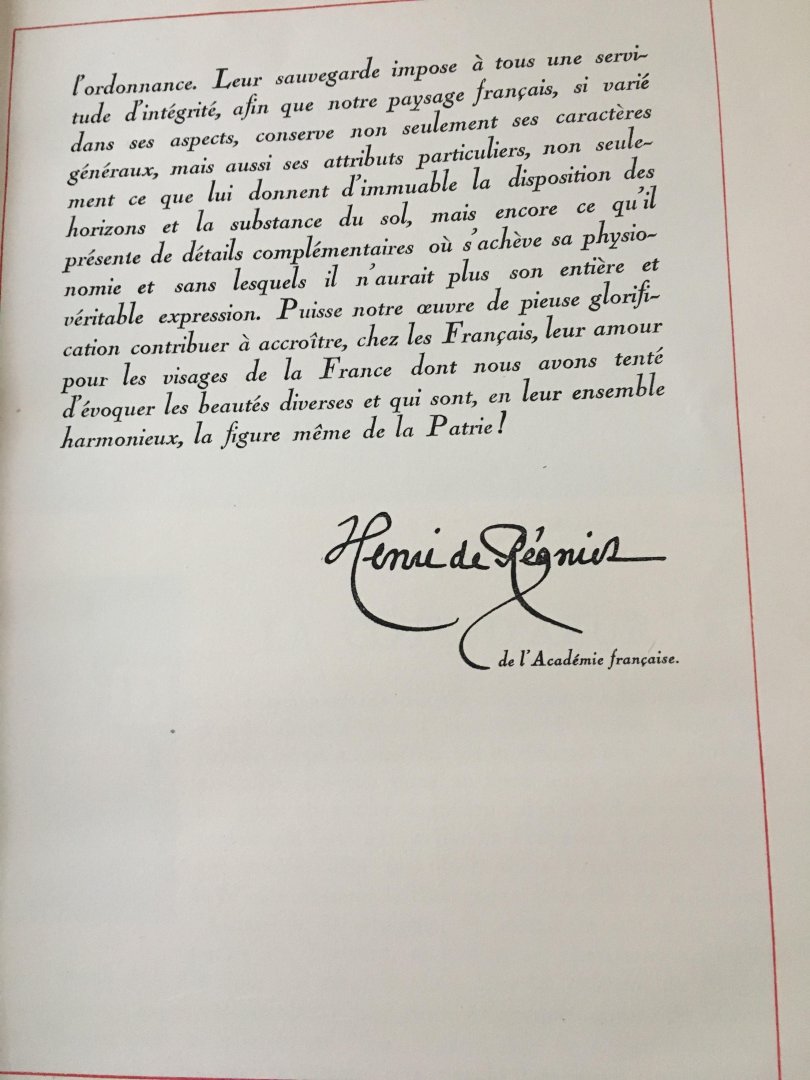 l'ordonnance. Leur sauvegarde impose à tous une servi-
tude d'intégrité, afin que notre paysage français, si varié
dans ses aspects, conserve non seulement ses caractères
généraux, mais aussi ses attributs particuliers, non seule-
ment ce que lui donnent d'immuable la disposition des
horizons et la substance du sol, mais encore ce qu'il
présente de détails complémentaires où s'achève sa physio-
nomie et sans lesquels il n'aurait plus son entière et
véritable expression. Puisse notre œuvre de pieuse glorifi-
cation contribuer à accroître, chez les Français, leur amour
pour les visages de la France dont nous avons tenté
d'évoquer les beautés diverses et qui sont, en leur ensemble
harmonieux, la figure même de la Patrie!
Henri de Régnier
de l'Académie française.